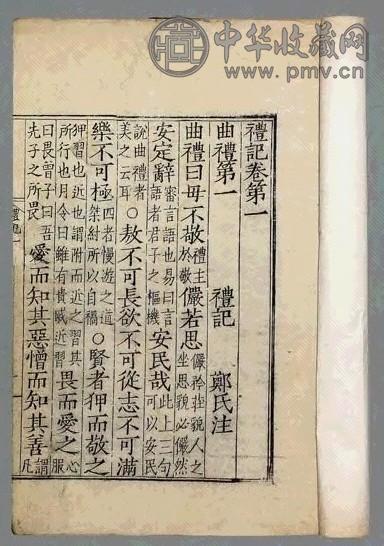 中华收藏网
www.pmv.cn
禮記卷第一
曲禮第一 禮記 鄭氏注
曲禮曰毋不敬禮主於敬儼若思儼矜莊貌人之坐思貌必儼然
安定辭審言語也易曰言語者君子之樞機安民哉此上三句可以安民
說曲禮者美之云耳○敖不可長欲不可從志不可滿
樂不可極四者慢遊之道桀紂所以自禍○賢者狎而敬之
狎習也近也謂附而近之習其所行也月令曰雖有貴戚近習畏而愛之心服
曰畏曾子曰吾先子之所畏愛而知其惡憎而知其善謂凡
禮記一